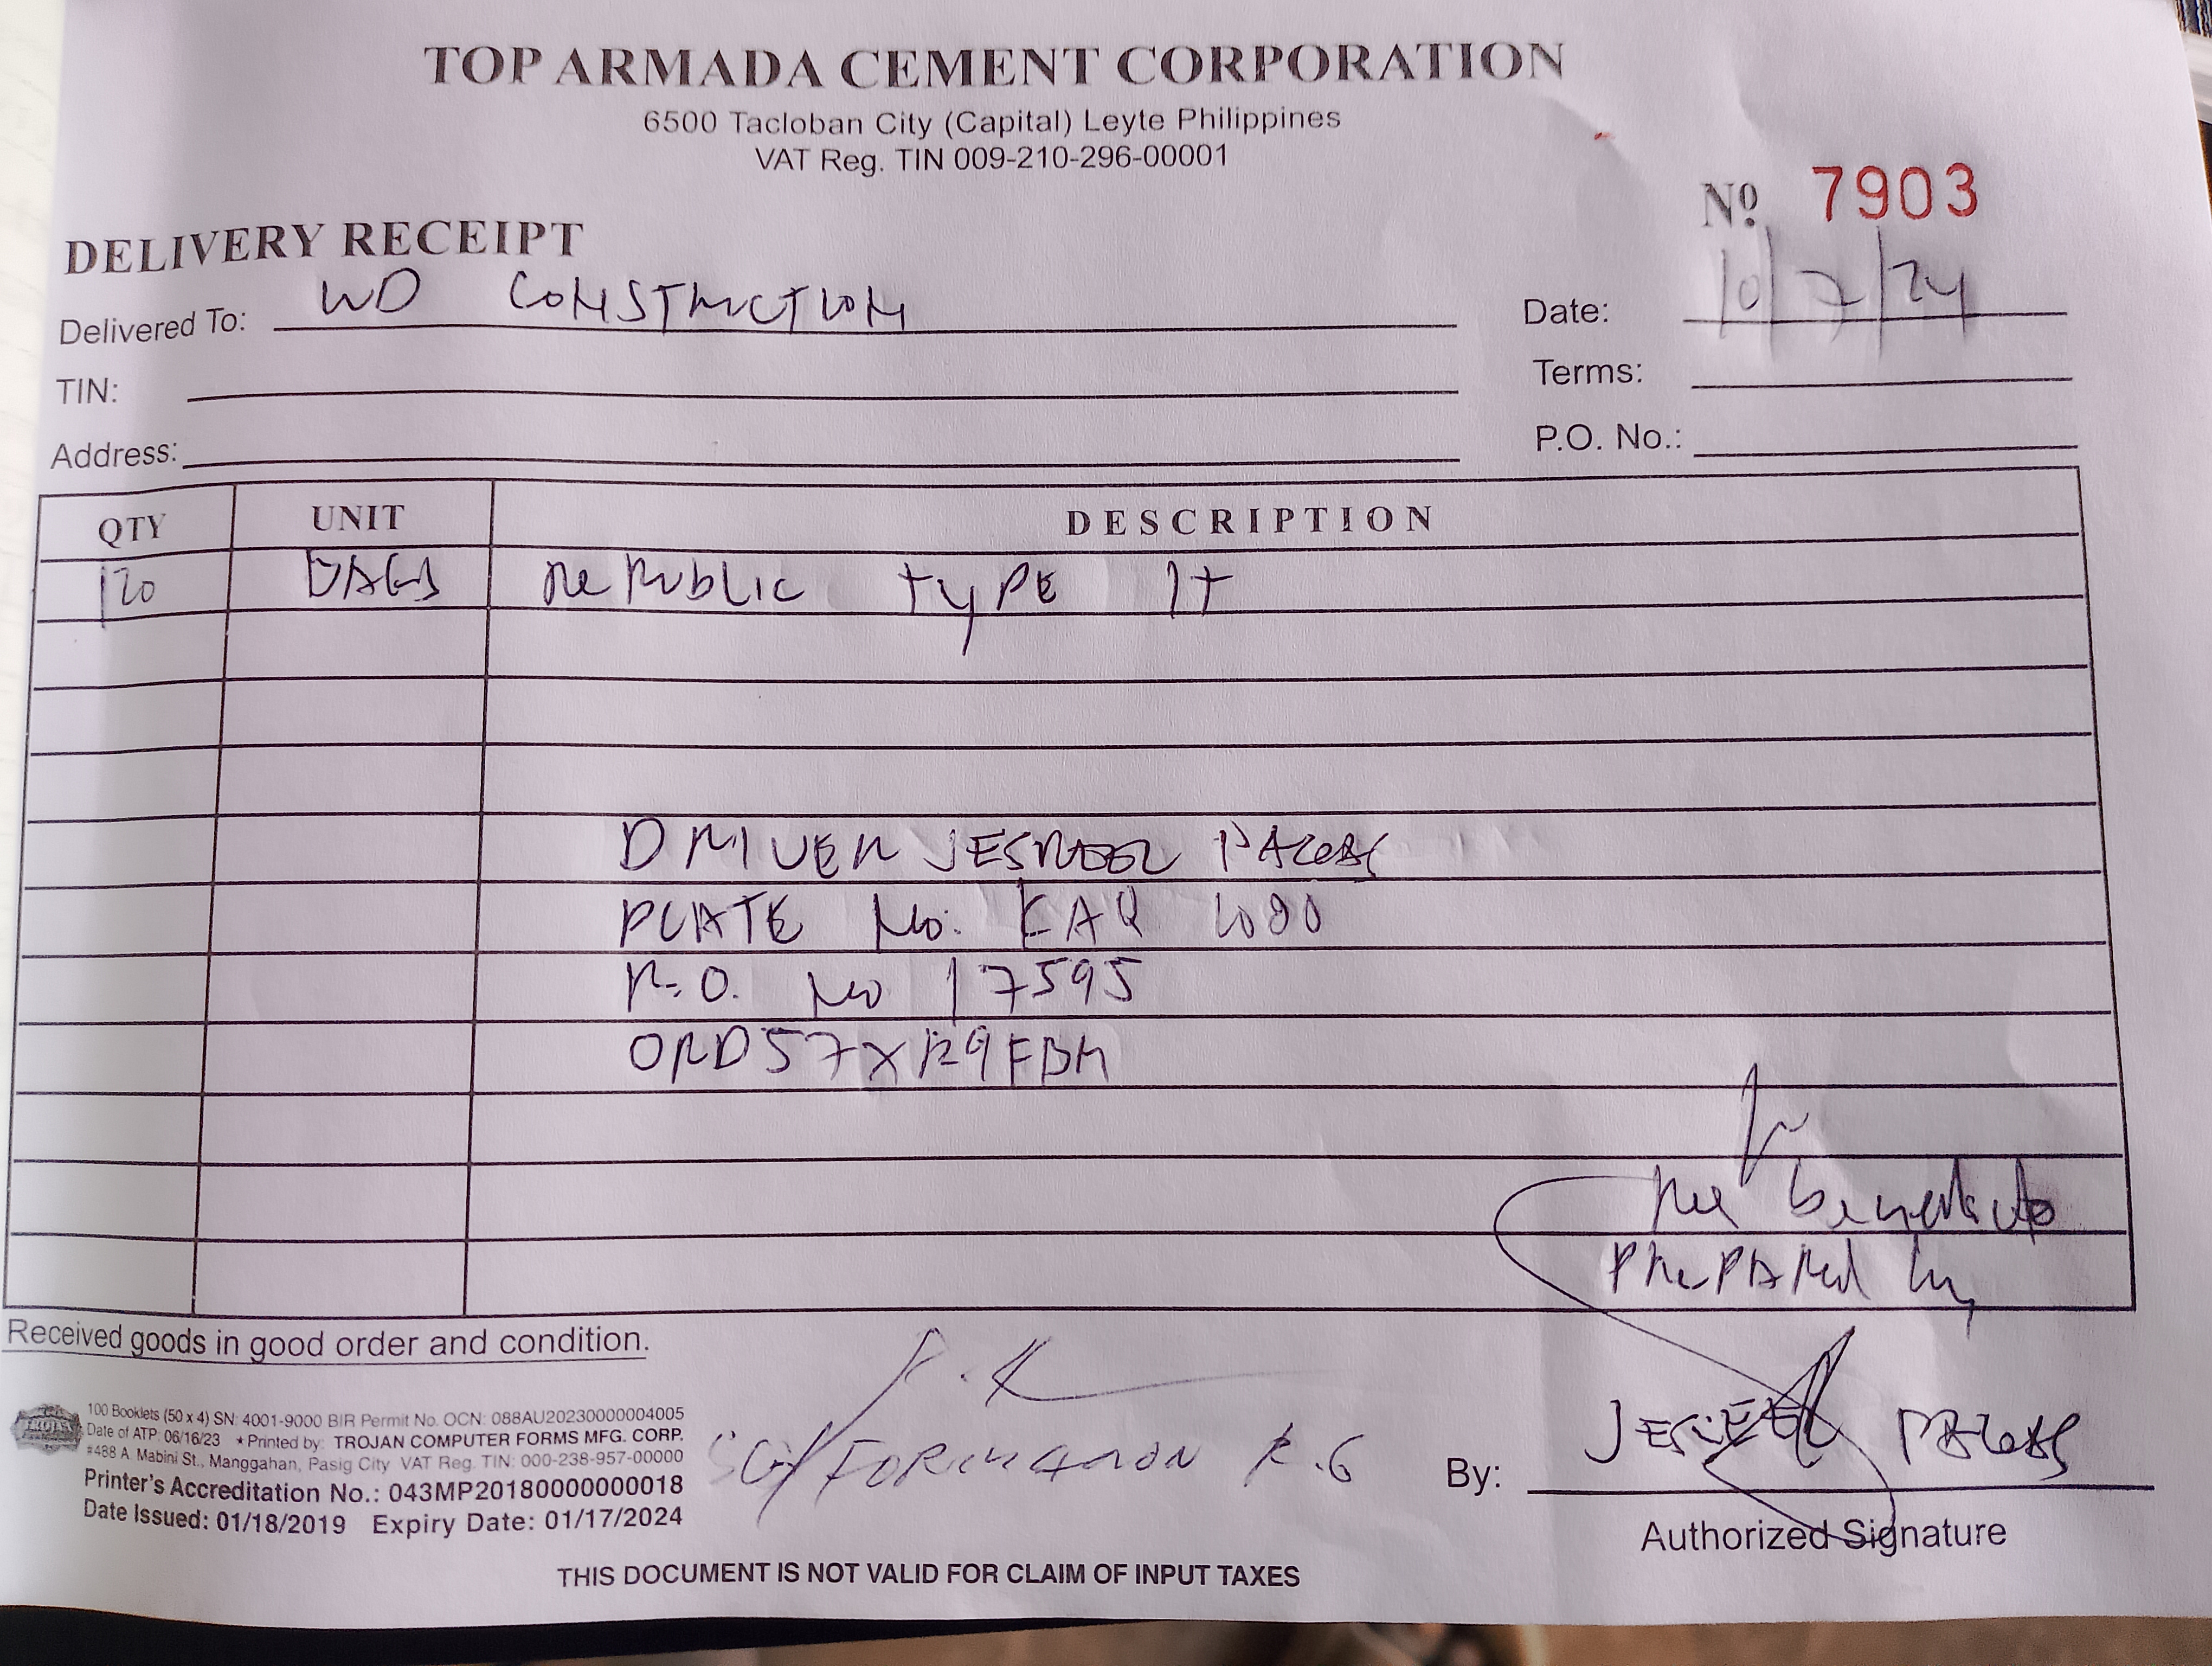 TOP ARMADA CEMENT CORPORATION
6500 Tacloban City (Capital) Leyte Philippines
VAT Reg. TIN 009-210-296-00001
Nº 7903
DELIVERY RECEIPT
Delivered To: WD CONSTRUCTION
Date: 10/7/24
TIN:
Terms:
Address:
P.O. No.:
QTY UNIT DESCRIPTION
120 BAGS REPUBLIC TYPE 1T
DRIVER
PLATE No. KAQ
R.O. No 17595
ORD57XR9FBM
Benedicto
PREPARED by
Received goods in good order and condition.
100 Booklets (50 x 4) SN: 4001-9000 BIR Permit No. OCN: 088AU20230000004005
Date of ATP: 06/16/23 ★Printed by: TROJAN COMPUTER FORMS MFG. CORP.
#488 A. Mabini St., Manggahan, Pasig City VAT Reg. TIN: 000-238-957-00000
Printer's Accreditation No.: 043MP20180000000018
Date Issued: 01/18/2019 Expiry Date: 01/17/2024
By:
Authorized Signature
THIS DOCUMENT IS NOT VALID FOR CLAIM OF INPUT TAXES